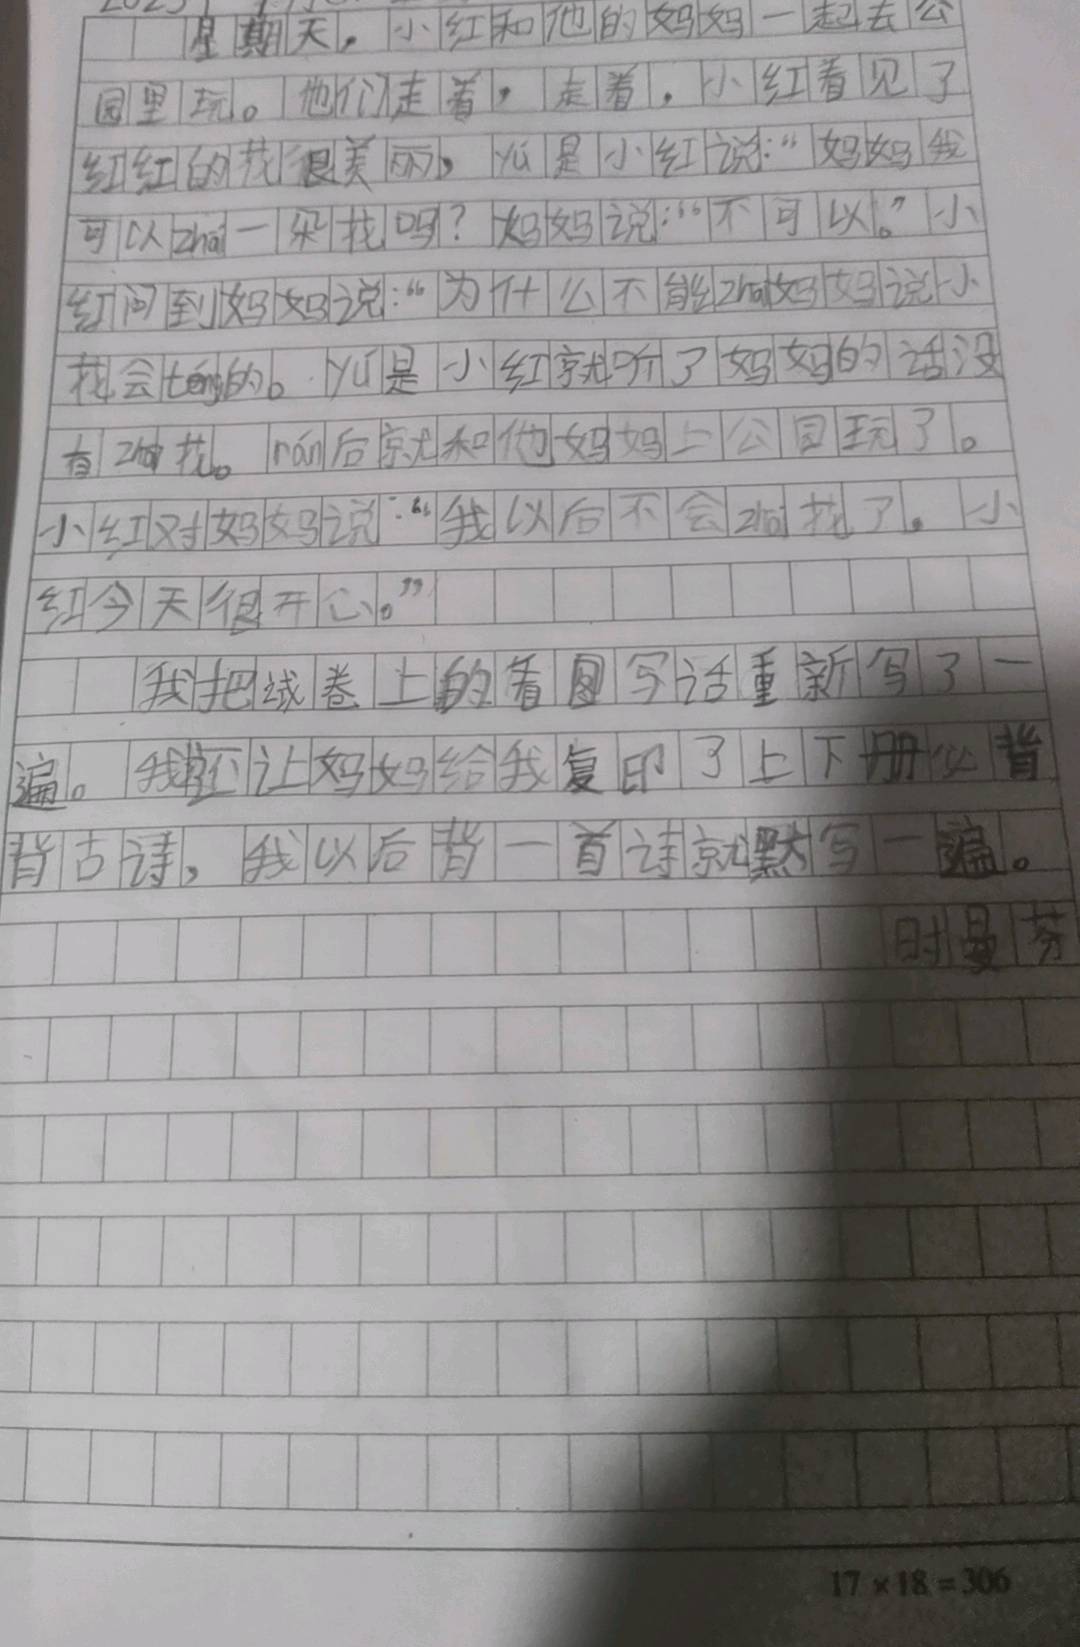 星期天，小红和他的妈妈一起去公
园里玩。他们走着，走着，小红看见了
红红的花很美丽，yú是小红说：“妈妈我
可以zhāi一朵花吗？妈妈说：“不可以。”小
红问到妈妈说：“为什么不能zhāi妈妈说小
花会téng的。yú是小红就听了妈妈的话没
有zhāi花。rán后就和他妈妈上公园玩了。
小红对妈妈说：“我以后不会zhāi花了。小
红今天很开心。”
我把试卷上的看图写话重新写了一
遍。我还让妈妈给我复印了上下册必背
背古诗，我以后背一首诗就默写一遍。
时曼芬
17×18=306